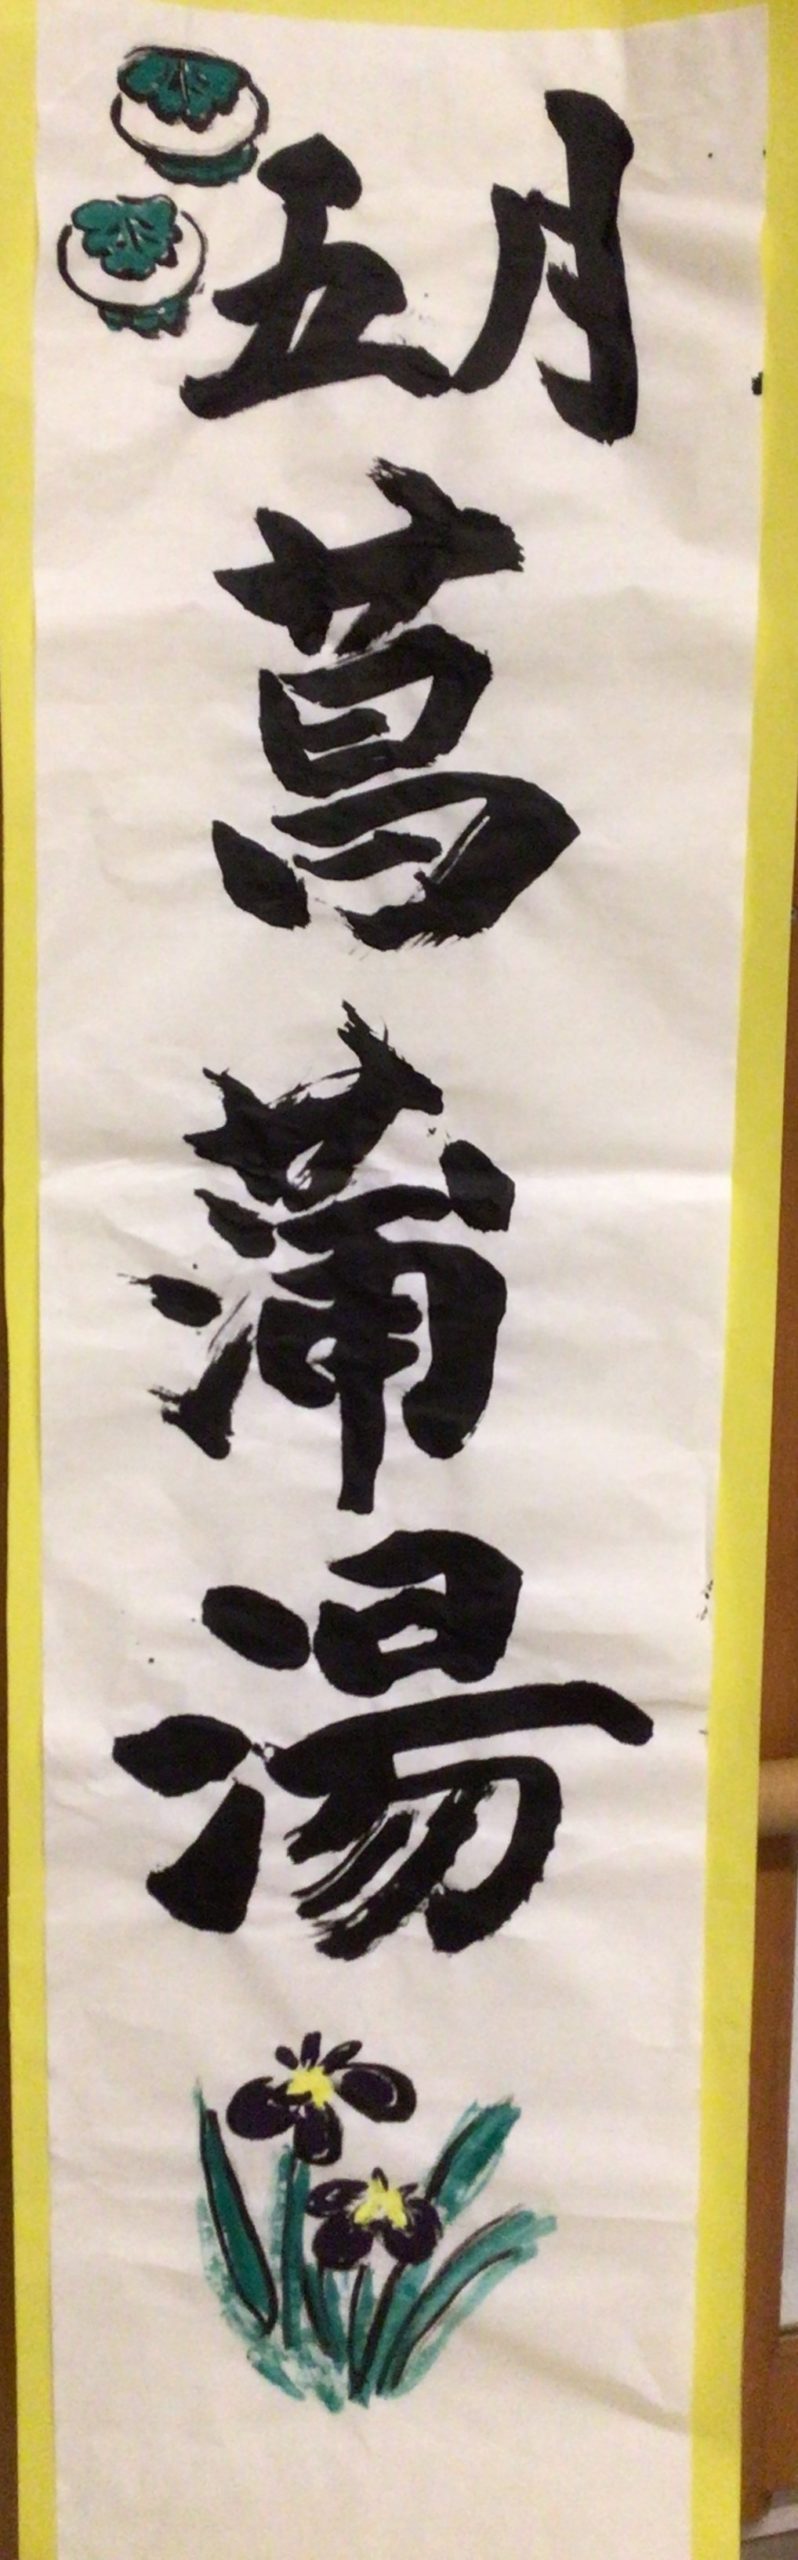 五月
菖蒲湯